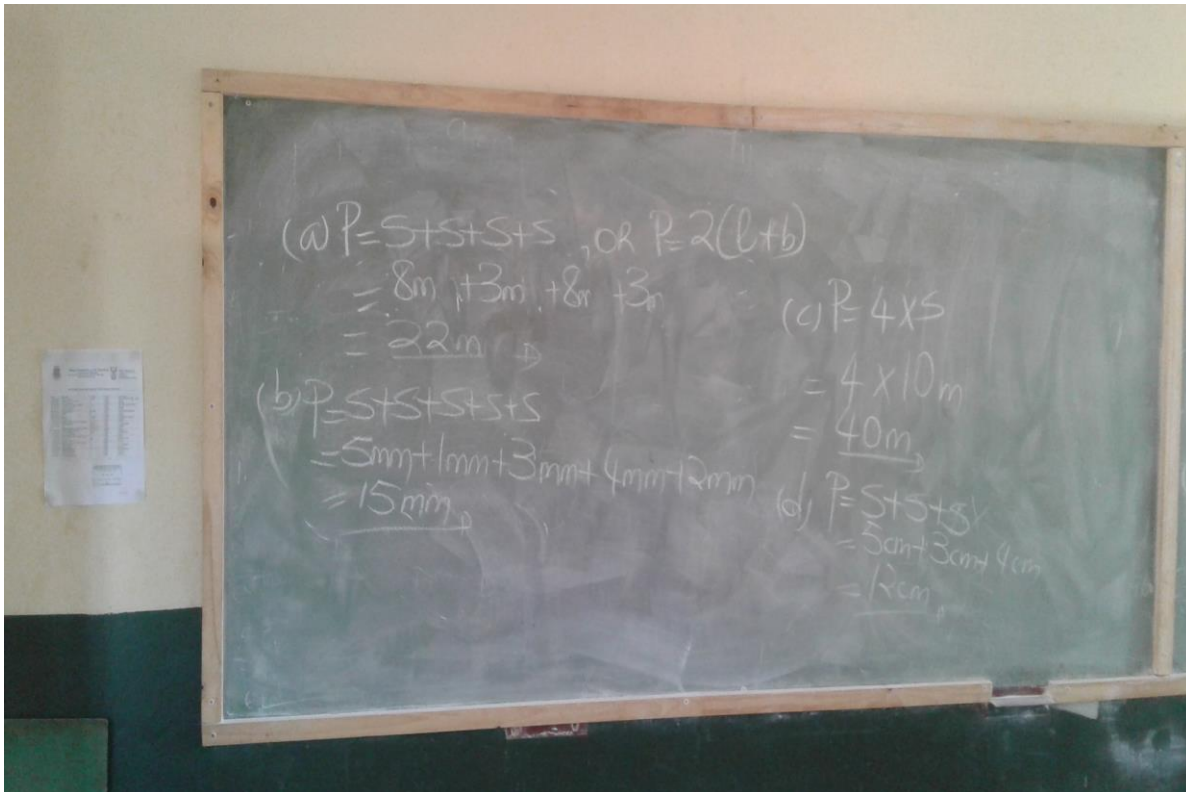 (a) P=S+S+S+S , OR P=2(l+b)
= 8m +3m +8m +3m
= 22m
(b) P=S+S+S+S+S
=5mm+1mm+3mm+4mm+2mm
= 15mm
(c) P= 4×S
= 4 ×10m
= 40m
(d) P= S+S+S
= 5cm+3cm+4cm
= 12cm